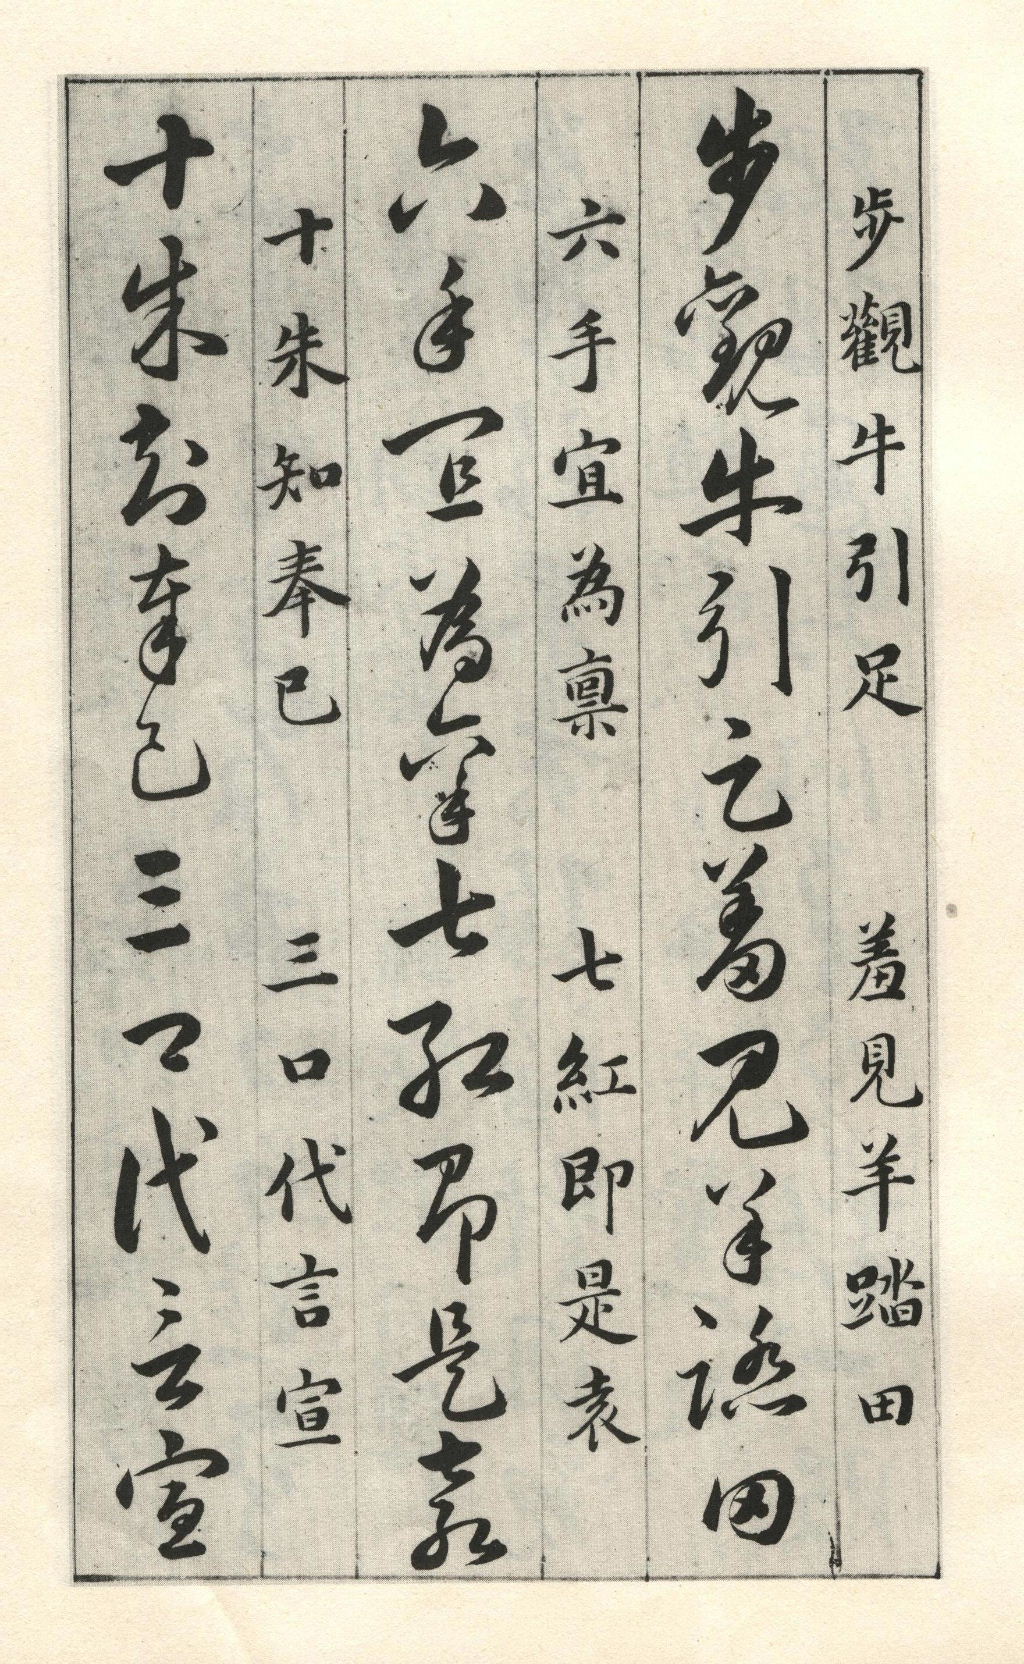 步觀牛引足 羞見羊踏田
步觀牛引足羞見羊踏田
六手宜為稟 七紅即是袁
六手宜為稟七紅即是袁
十朱知奉已 三口代言宣
十朱知奉已三口代言宣